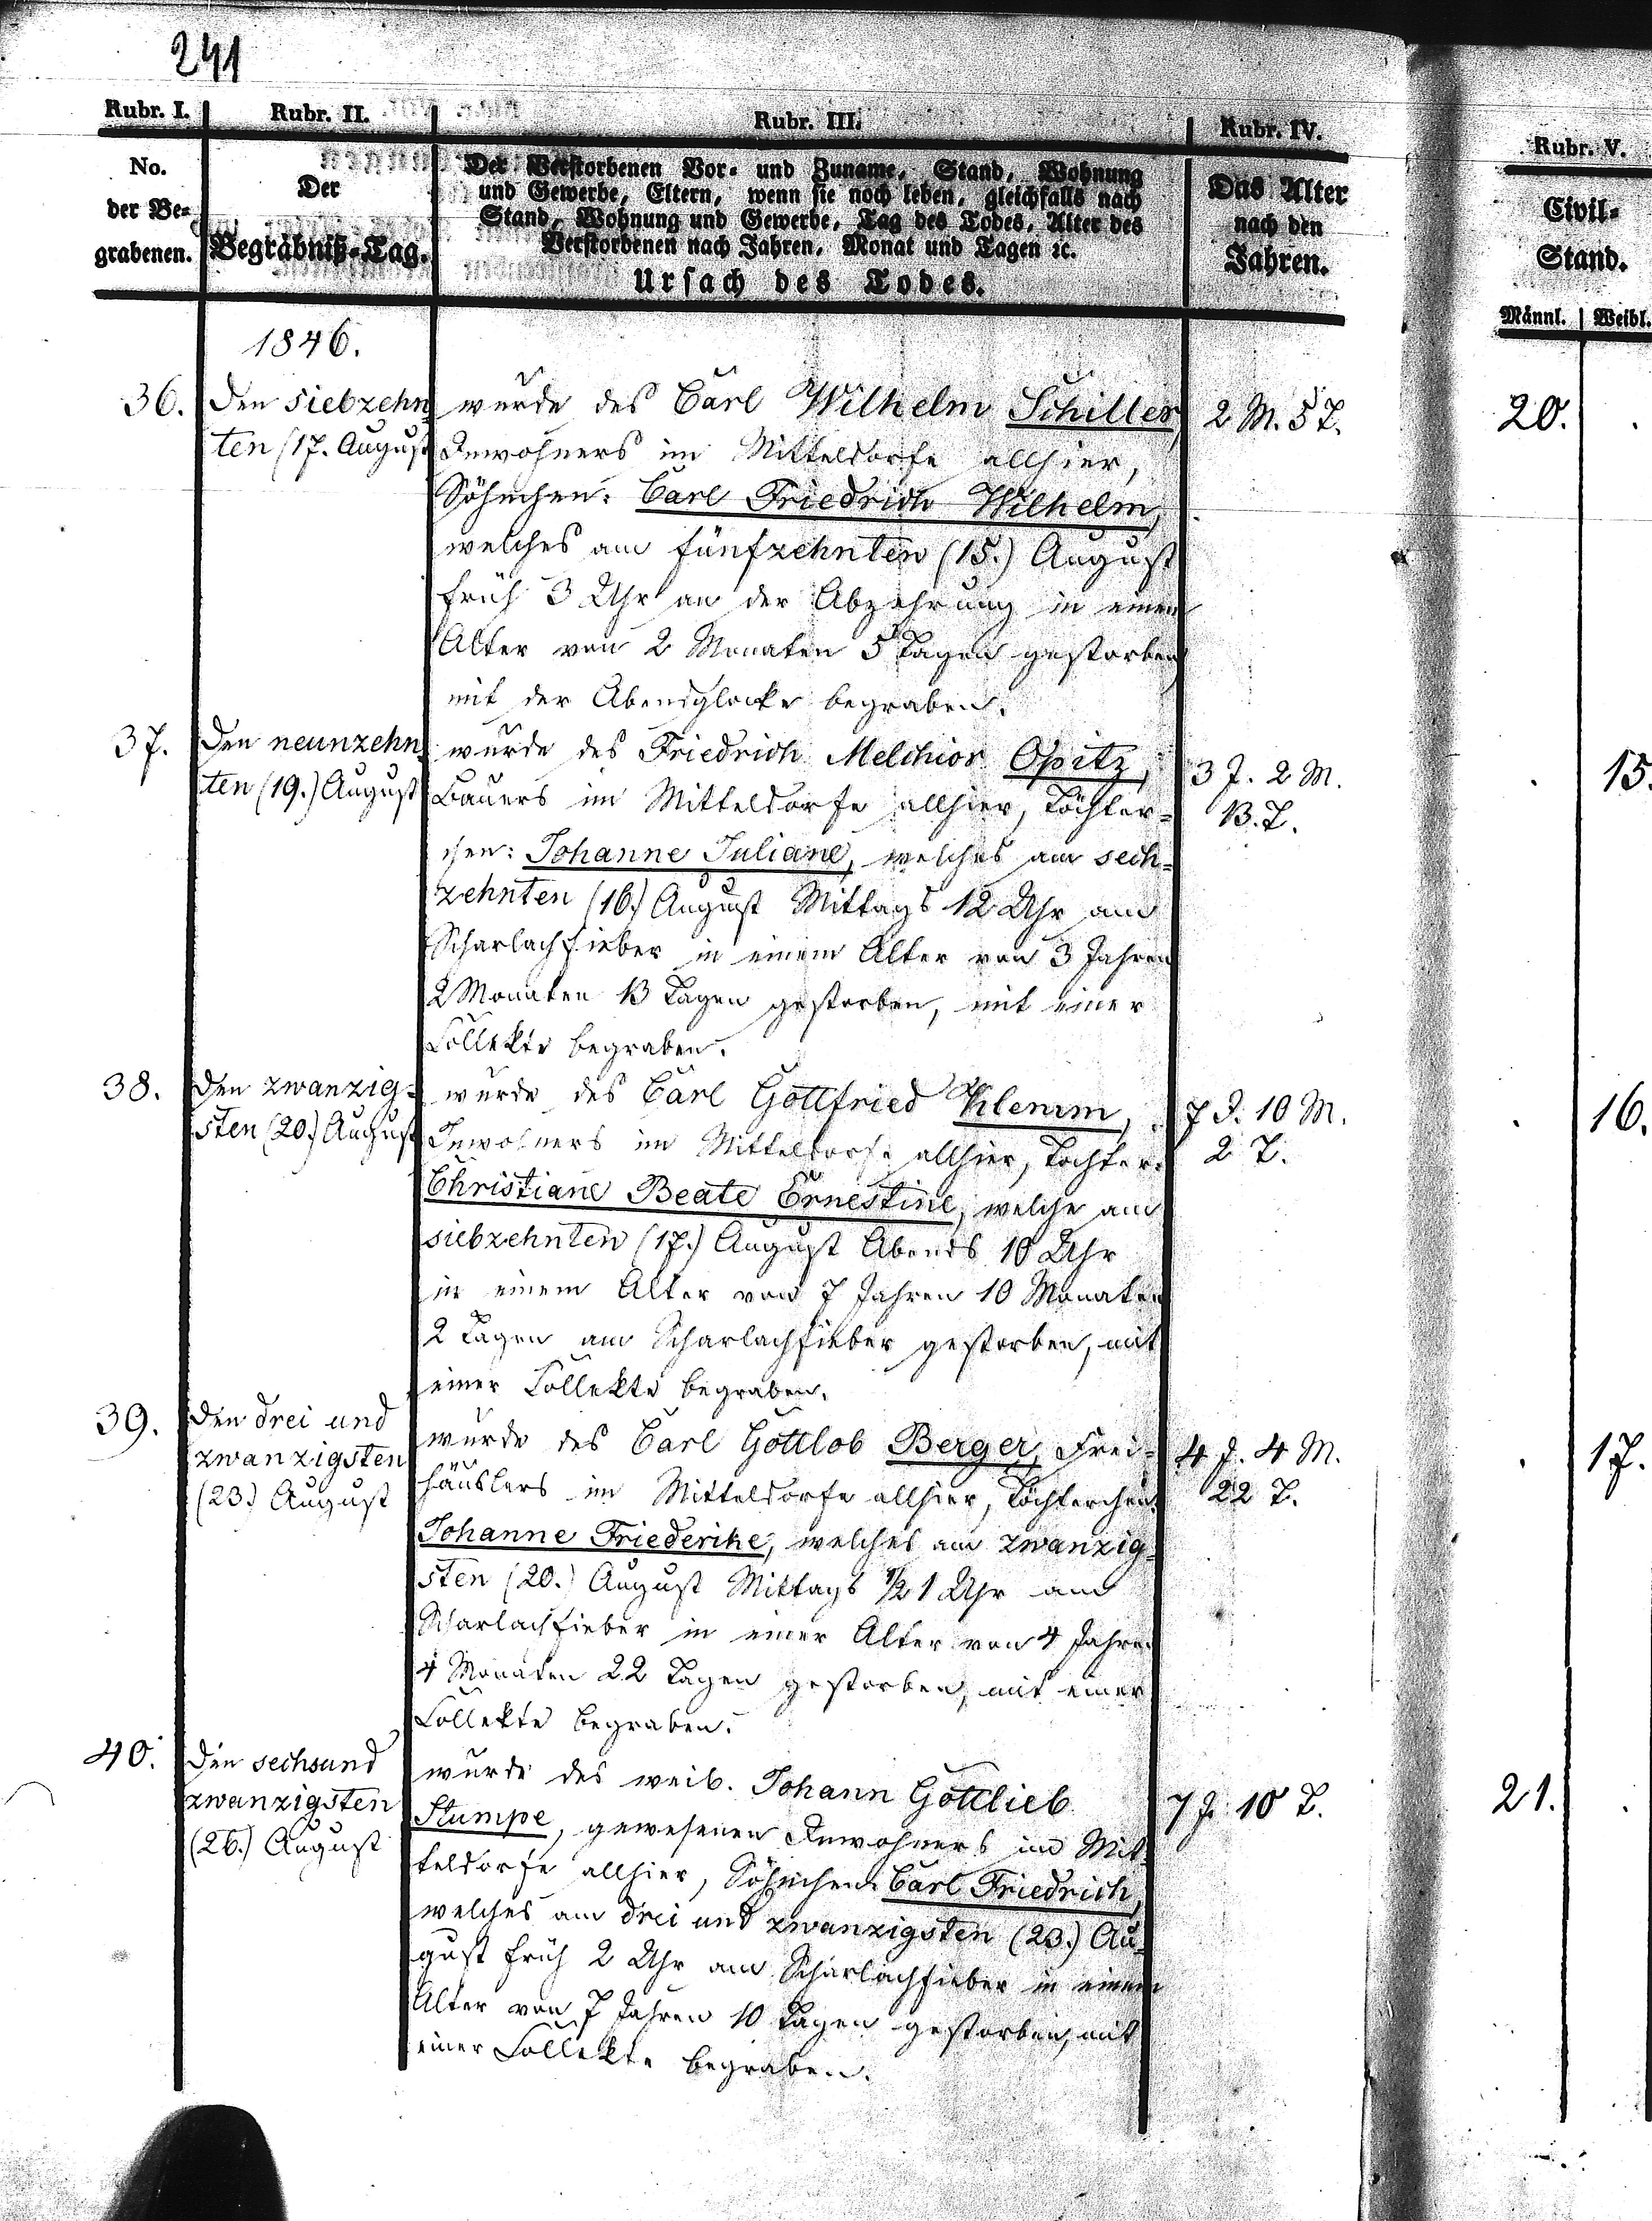 241
Rubr. I.
Rubr. II.
Rubr. III.
Rubr. IV.
Rubr. V.
No.
der Be-
grabenen.
Der
Begräbniß-Tag.
Der Verstorbenen Vor- und Zuname, Stand, Wohnung
und Gewerbe, Eltern, wenn sie noch leben, gleichfalls nach
Stand, Wohnung und Gewerbe, Tag des Todes, Alter des
Verstorbenen nach Jahren, Monat und Tagen ꝛc.
Ursach des Todes.
Das Alter
nach den
Jahren.
Civil-
Stand.
Männl.
Weibl.
1846.
36.
Den siebzehn
ten (17. August
wurde des Carl Wilhelm Schiller,
Inwohners im Mitteldorfe allhier,
Söhnchen: Carl Friedrich Wilhelm,
welches am fünfzehnten (15.) August
früh 3 Uhr an der Abzehrung in einem
Alter von 2 Monaten 5 Tagen gestorben
mit der Abendglocke begraben.
2 M. 5 T.
20.
37.
Den neunzehn
ten (19.) August
wurde des Friedrich Melchior Opitz,
Bauers im Mitteldorfe allhier, Töchter-
chen: Johanne Juliane, welches am sech-
zehnten (16.) August Mittags 12 Uhr am
Scharlachfieber in einem Alter von 3 Jahren
2 Monaten 13 Tagen gestorben, mit einer
Collekte begraben.
3 J. 2 M.
13. T.
15.
38.
Den zwanzig-
sten (20.) August
wurde des Carl Gottfried Klemm,
Inwohners im Mitteldorfe allhier, Tochter:
Christiane Beate Ernestine, welche am
siebzehnten (17.) August Abends 10 Uhr
in einem Alter von 7 Jahren 10 Monaten
2 Tagen am Scharlachfieber gestorben, mit
einer Collekte begraben.
7 J. 10 M.
2 T.
16.
39.
Den drei und
zwanzigsten
(23.) August
wurde des Carl Gottlob Berger, Frei-
häuslers im Mitteldorfe allhier, Töchterchen:
Johanne Friederike, welches am zwanzig-
sten (20.) August Mittags ½ 1 Uhr am
Scharlachfieber in einer Alter von 4 Jahren
4 Monaten 22 Tagen gestorben, mit einer
Collekte begraben.
4 J. 4 M.
22 T.
17.
40.
Den sechsund
zwanzigsten
(26.) August
wurde des weil. Johann Gottlieb
Stumpe, gewesenen Inwohners im Mit-
teldorfe allhier, Söhnchen: Carl Friedrich,
welches am drei und zwanzigsten (23.) Au-
gust früh 2 Uhr am Scharlachfieber in einem
Alter von 7 Jahren 10 Tagen gestorben, mit
einer Collekte begraben.
7 J. 10 T.
21.